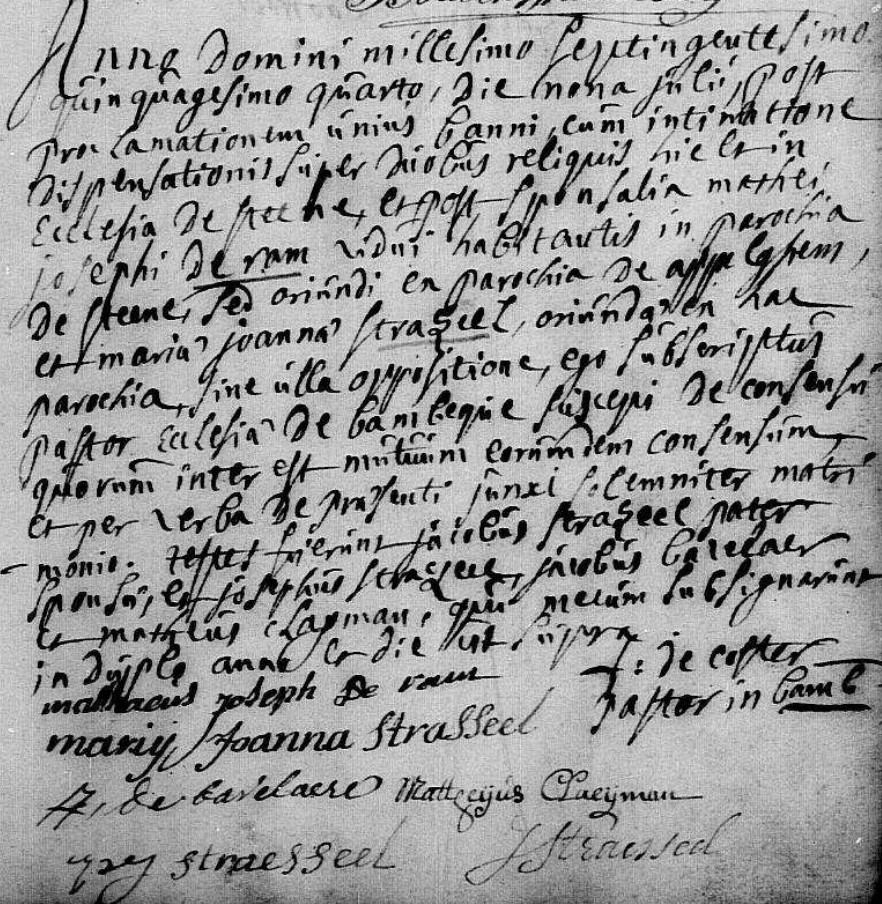 Anno Domini millesimo septingentesimo
quinquagesimo quarto, Die nona julii, post
proclamationem unius banni, cum intimatione
Dispensationis super duobus reliquis hic et in
Ecclesia De steene, et post sponsalia mathei
josephi De ram vidui habitantis in parochia
De steene, sed oriundi ex parochia De appelghem,
et maria joanna strazeel, oriunda ex hac
parochia, sine ulla oppositione, ego subscriptus
pastor Ecclesia De bambeque suscepi De consensu
quorum inter est mutuum eorumdem consensum,
et per verba De prasenti junxi solemniter matri
monio. testes fuerunt jacobus strazeel pater
sponsa, et josephus strazeel, jacobus bavelaer
et matheus clayman, qui mecum subsignarunt
in Duplo anno et die ut supra
matthaeus joseph De ram J: De coster
pastor in bamb
marij Joanna Strasseel
J, de bavelaere Mattheijus Claeyman
straesseel J Straesseel